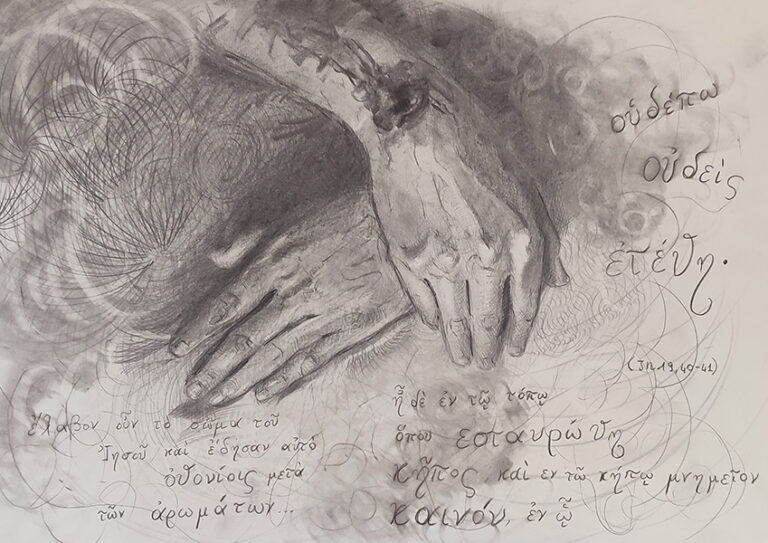 ἔλαβον οὖν τὸ σῶμα τοῦ
Ἰησοῦ καὶ ἔδησαν αὐτὸ
ὀθονίοις μετὰ
τῶν ἀρωμάτων...
ἦ δὲ ἐν τῷ τόπῳ
ὅπου εσταυρώθη
κῆπος, καὶ εν τῷ κήπῳ μνημεῖον
καινόν, ἐν ᾧ
οὐδέπω
οὐδεὶς
ἐτέθη.
(Jn.19,40-41)